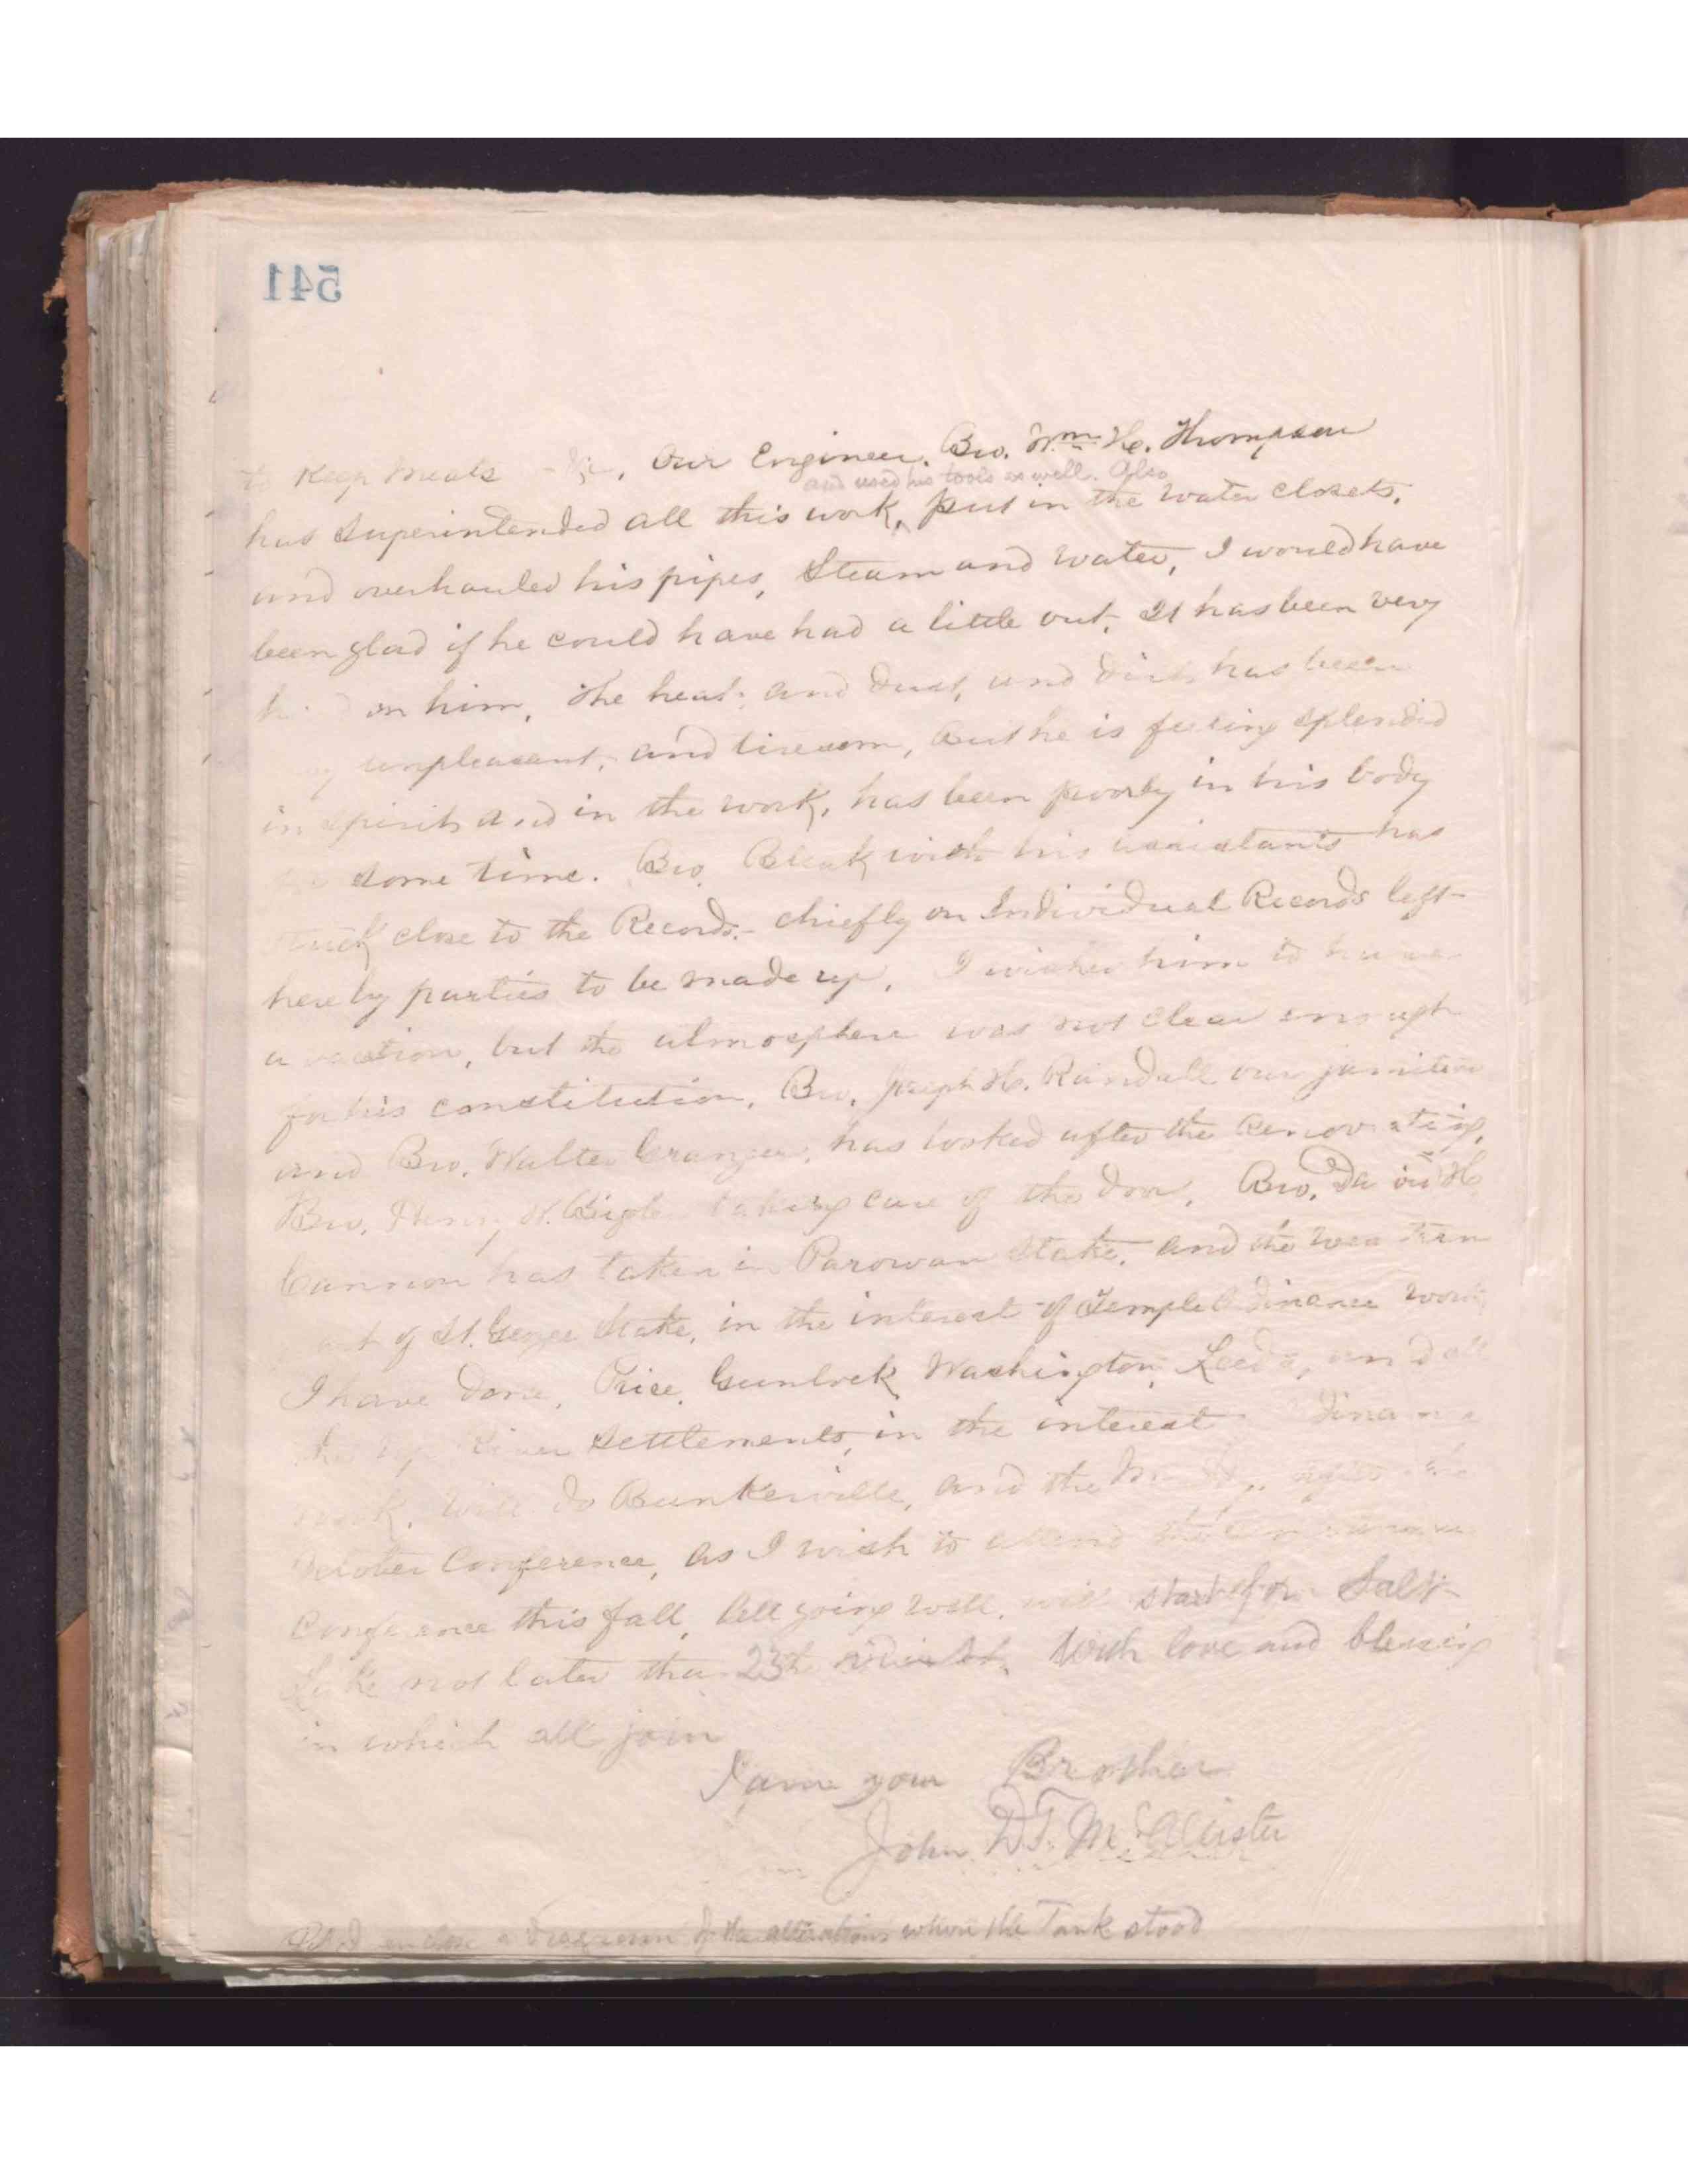 541
to keep meats &c, Our Engineer, Bro. Wm. H. Thompson
and used his tools as well. Also
has superintended all this work, put in the water closets,
and overhauled his pipes, Steam and water, I would have
been glad if he could have had a little out. It has been very
on him, The heat, and dust, and dirt has been
unpleasant, and tiresom, But he is feeling splendid
in spirit and in the work, has been poorly in his body
some time. Bro. Bleak with his assistants has
stuck close to the Records,- chiefly on Individual Records left
here by parties to be made up, I wished him to have
a vacation, but the atmosphere was not clear enough
for his constitution, Bro. Joseph H. Randall our janitor
and Bro. Walter Granger, has looked after the renovating,
Bro. Henry W. Bigler taking care of the door, Bro. David H.
Cannon has taken in Parowan Stake, and the western
part of St. George Stake, in the interest of Temple Ordinance work
I have done, Price, Gunlock, Washington, Leeds, and all
the up River settlements, in the interest
work, will do Bunkerville, and the after the
October Conference, as I wish to attend the
Conference this fall, All going well, will start for Salt
Lake not later than 23rd With love and blessing
in which all join
I am your Brother
John D.T. McAllister
P.S. I enclose a Diagram of the alterations where the Tank stood